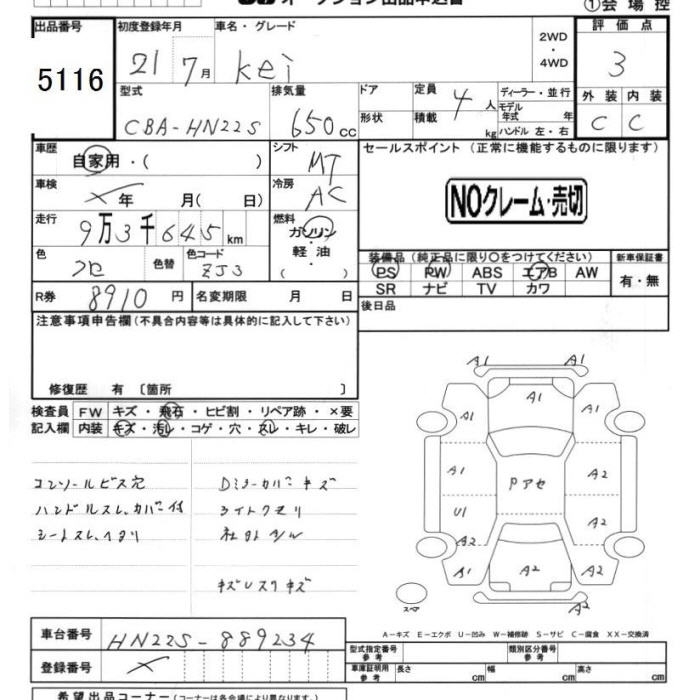 オークション出品申込書 ①会場控
出品番号 初度登録年月 車名・グレード 2WD・4WD 評価点
5116 21 7月 Kei 3
型式 排気量 ドア 定員 ディーラー・並行 外装 内装
CBA-HN22S 650cc 形状 積載 4人 kg モデル年式 年 ハンドル 左・右 C C
車歴 自家用・( ) シフト MT セールスポイント(正常に機能するものに限ります)
車検 × 年 月( 日) 冷房 AC NOクレーム・売切
走行 9万3千645km 燃料 ガソリン・軽油・( )
色 色替 色コード ZJ3 装備品(純正品に限り○をつけてください) 新車保証書
PS PW ABS エアB AW 有・無
SR ナビ TV カワ
R券 8910円 名変期限 月 日 後日品
注意事項申告欄(不具合内容等は具体的に記入して下さい)
修復歴 有 〔箇所 〕
検査員 FW キズ・飛石・ヒビ割・リペア跡・×要
記入欄 内装 キズ・汚レ・コゲ・穴・スレ・キレ・破レ
コンソールビス穴 Dミラーカバーキズ
ハンドルスレ、カバー付 ライトクモリ
シートスレ、ヘタリ
A1 A1
A1 A1 A1
A1 Pアセ A2
U1 A2
A2
A1 A2 A2
A2
スペア
A-キズ E-エクボ U-凹み W-補修跡 S-サビ C-腐食 XX-交換済
車台番号 HN22S-889234
登録番号 ×
型式指定番号 参考 類別区分番号 参考
車庫証明用 参考 長さ cm 幅 cm 高さ cm
希望出品コーナー(コーナーは各会場により異なります。)